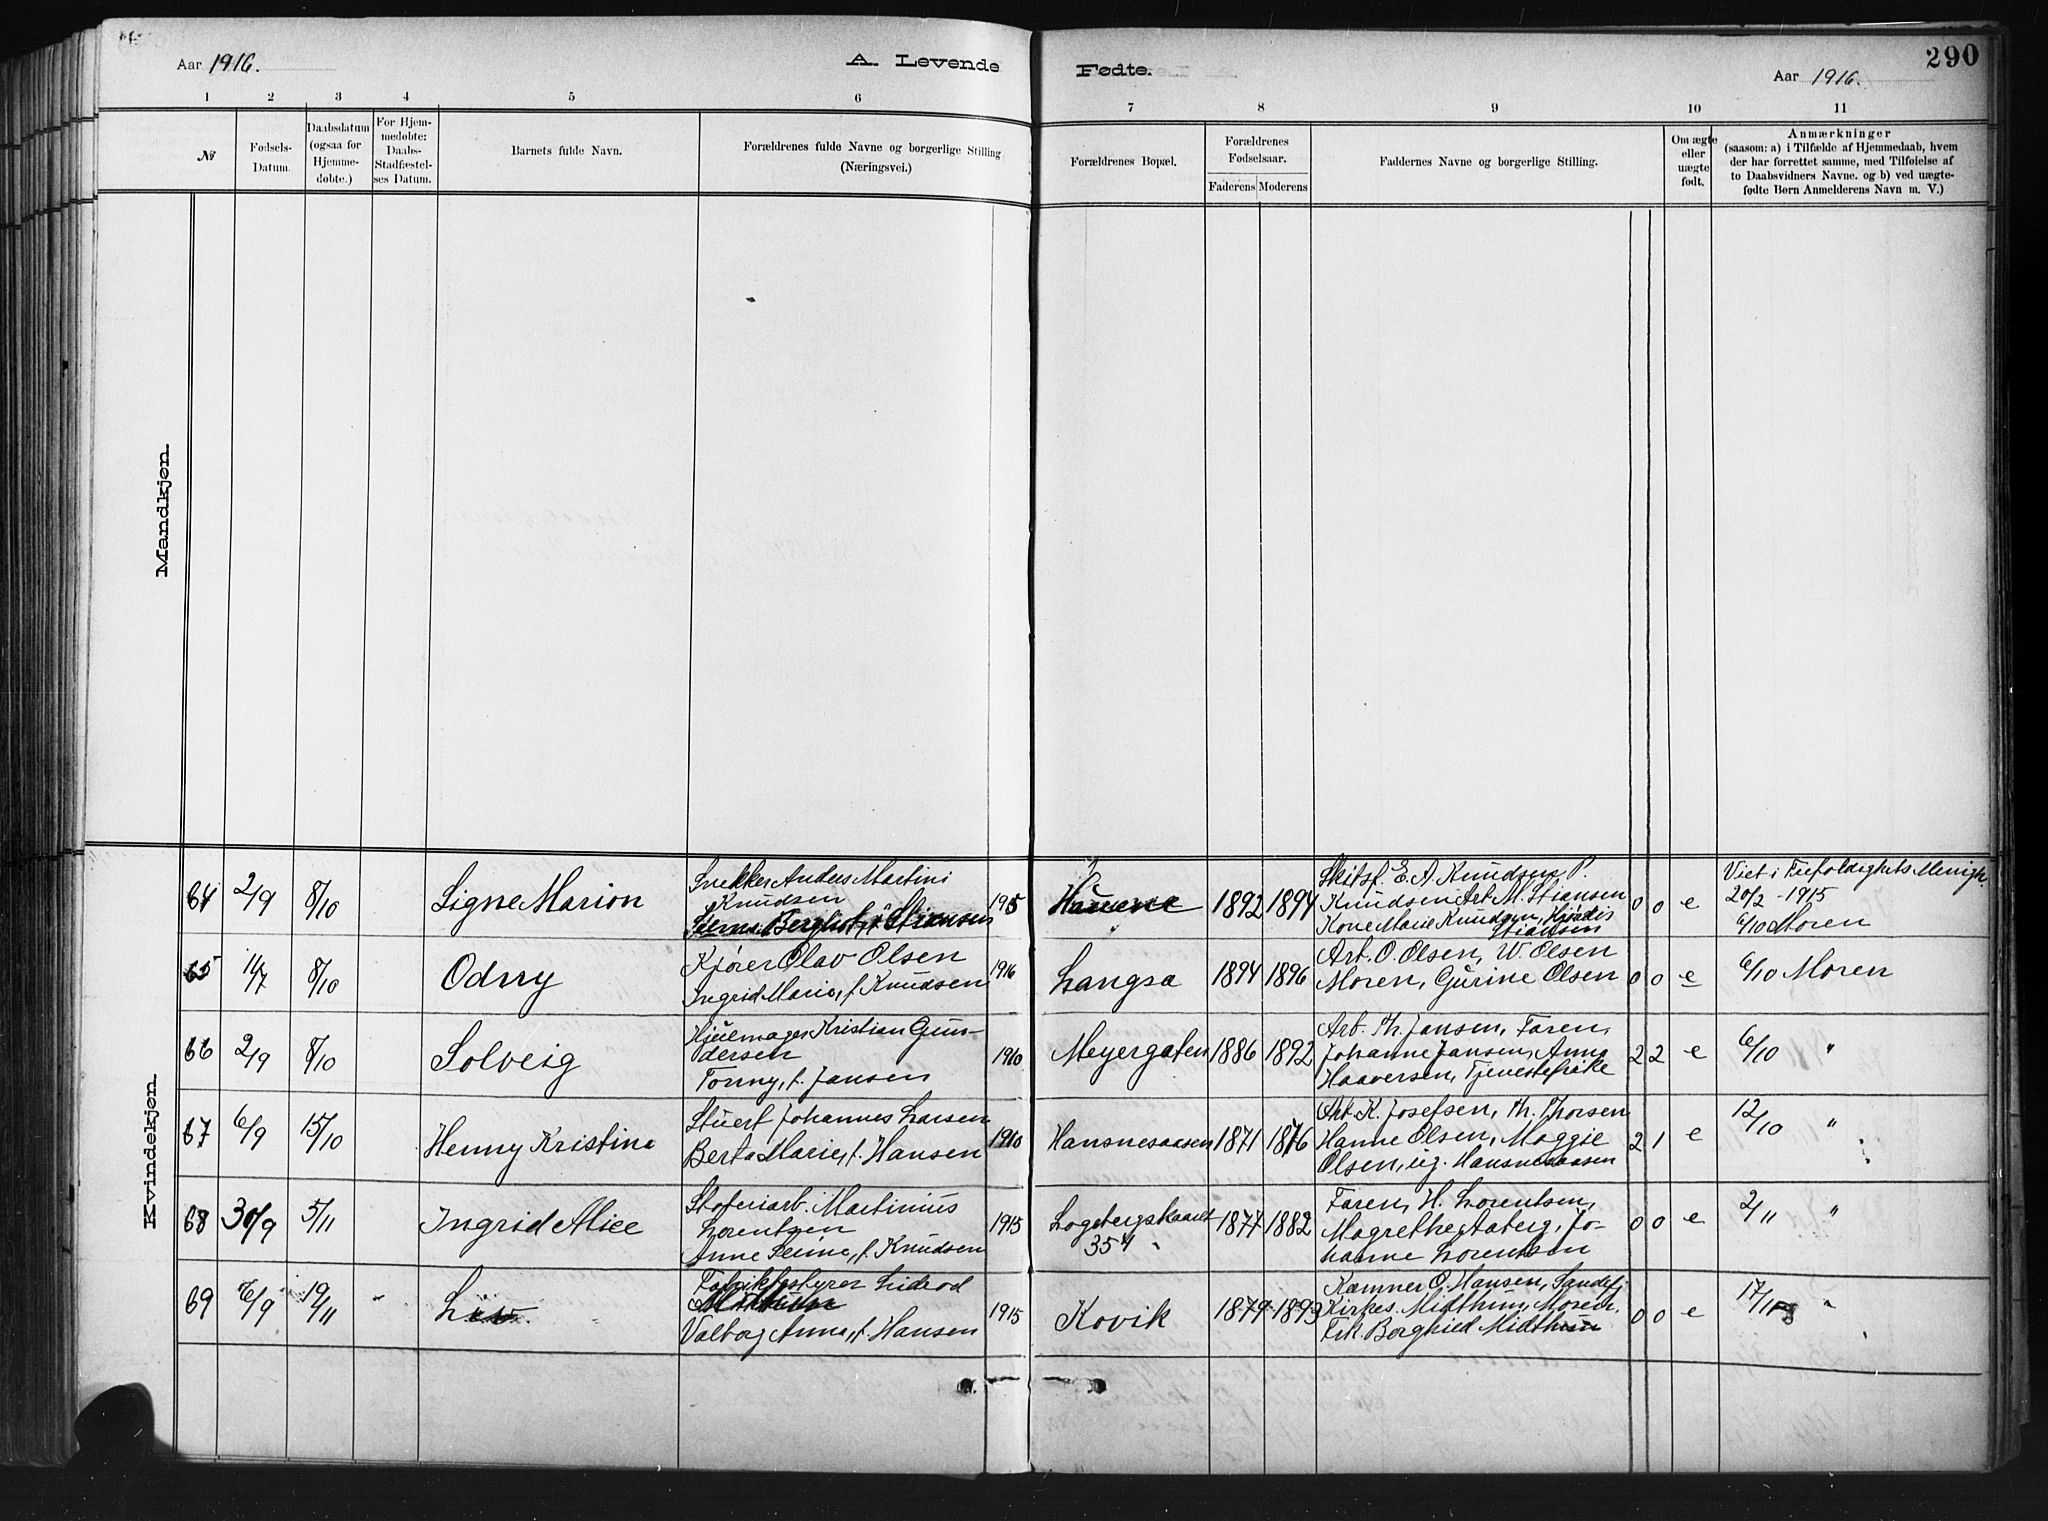 Aar 1916.
A. Levende
Fødte.
Aar 1916.
290
1 2 3 4 5 6 7 8 9 10 11
№
Fødsels-
Datum.
Daabsdatum
(ogsaa for
Hjemme-
døbte.)
For Hjem-
medøbte:
Daabs-
Stadfæstel-
ses Datum.
Barnets fulde Navn.
Forældrenes fulde Navne og borgerlige Stilling
(Næringsvei.)
Forældrenes Bopæl.
Forældrenes
Fødselsaar.
Faderens Moderens
Faddernes Navne og borgerlige Stilling.
Om ægte
eller
uægte
født.
Anmærkninger
(saasom: a) i Tilfælde af Hjemmedaab, hvem
der har forrettet samme, med Tilføielse af
to Daabsvidners Navne. og b) ved uægte-
fødte Børn Anmelderens Navn m. V.)
Mandkjøn.
Kvindekjøn.
64 2/9 8/10 Signe Marion
Snekker Anders Martini
Knudsen
Berghot, f. Stiansen
1915
1892 1894
Skitsf. E. A. Knudsen, P.
Knudsen, Arb. M. Stiansen
Kone Marie Knudsen, Hjørdis
Stiansen
0 0 e
Viet i Trefoldighets Menigh.
20/2 - 1915
6/10 Moren
65 11/7 8/10 Odny
Kjører Olav Olsen
Ingrid Marie, f. Knudsen
1916
Langsa
1894 1896
Arb. O. Olsen, W. Olsen
Moren, Gurine Olsen
0 0 e
6/10 Moren
66 2/9 8/10 Solveig
Hjulmager Kristian Gun-
dersen
Tonny, f. Jansen
1910
Meyergaten
1886 1892
Arb. Th. Jansen, Faren,
Johanne Jansen, Anna
Haaversen, Tjenestepike
2 2 e
6/10 "
67 6/9 15/10 Henny Kristine
Stuert Johannes Larsen
Berta Marie, f. Hansen
1910
Hansnesaasen
1871 1876
Arb. K. Josefsen, Th. Thorsen
Hanne Olsen, Maggie
Olsen, ug. Hansnesaasen
2 1 e
12/10 "
68 30/9 5/11 Ingrid Alice
Støperiarb. Martinius
Lorentzen
Anne Serine, f. Knudsen
1915
Logebergskaaret
354
1877 1882
Faren, H. Lorentsen,
Magrethe Aaberg, Jo-
hanne Lorentsen
0 0 e
2/11 "
69 6/9 19/11 Liv
Fabrikbestyrer Lidvod
Midthun
Valborg Anna, f. Hansen
1915
Kovik
1879 1893
Kæmner O. Hansen, Sandefj
Kirkes. Midthun, Moren,
Frk. Borghild Midthun
0 0 e
17/11 "